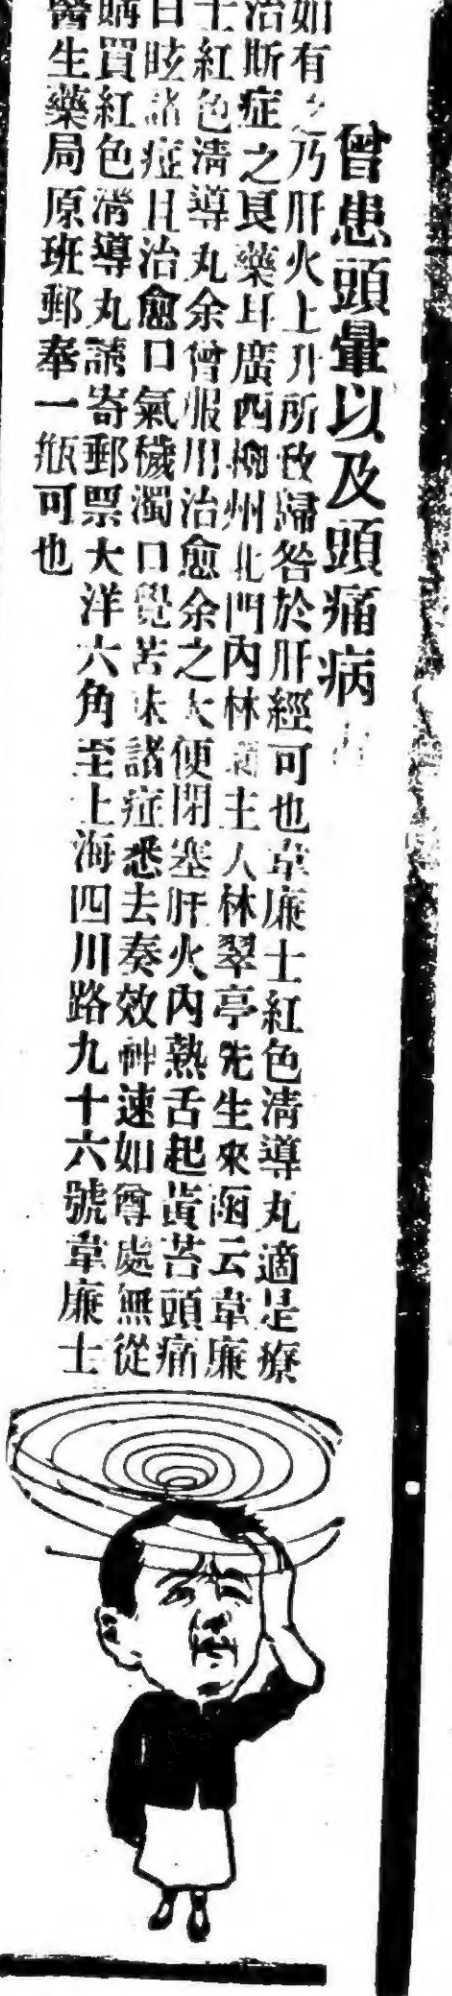 曾患頭暈以及頭痛病
如有之乃肝火上升所致歸咎於肝經可也韋廉士紅色清導丸適是療
治斯症之良藥耳廣西柳州北門內林主人林翠亭先生來函云韋廉
士紅色清導丸余曾服用治愈余之大便閉塞肝火內熱舌起黃苔頭痛
目眩諸症且治愈口氣穢濁口覺苦味諸症悉去奏效神速如尊處無從
購買紅色清導丸請寄郵票大洋六角至上海四川路九十六號韋廉士
醫生藥局原班郵奉一瓶可也